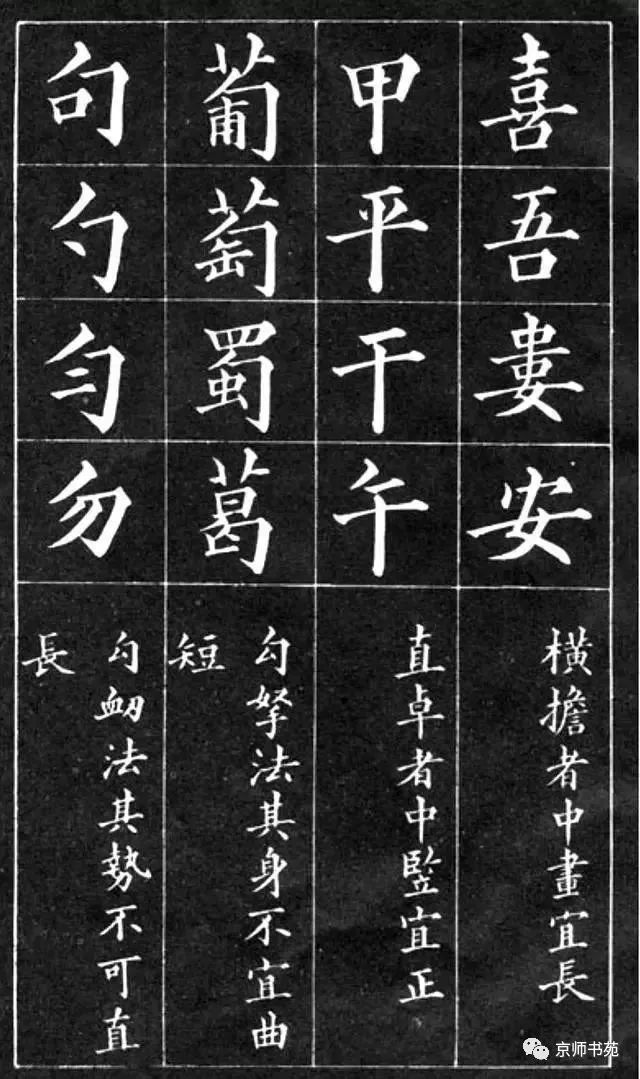 喜吾婁安
橫擔者中畫宜長
甲平干午
直卓者中竪宜正
葡萄蜀葛
勾拏法其身不宜曲
短
句勺匀勿
勾衂法其勢不可直
長
京师书苑